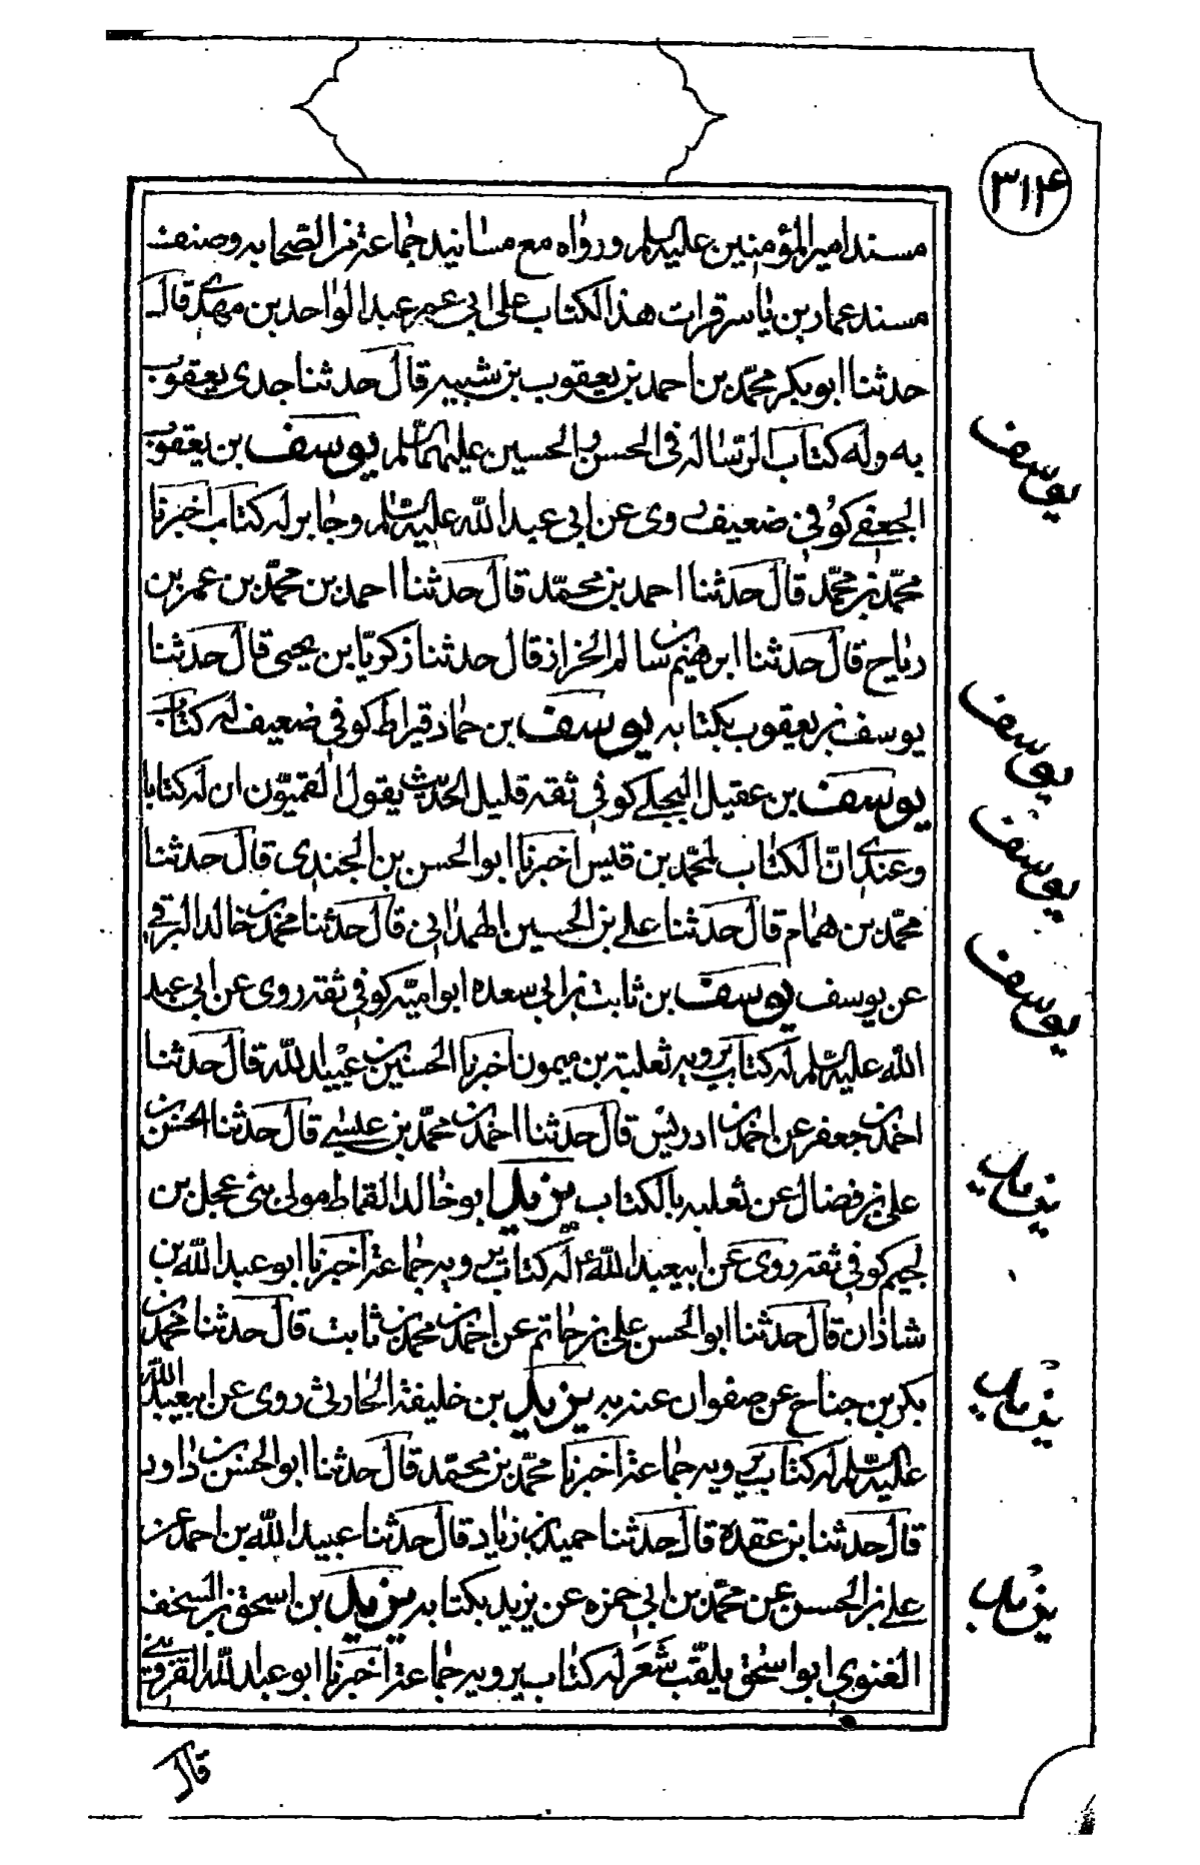 ٣١۴
مسند امير المؤمنين عليه السلم ورواه مع مسانيد جماعة من الصحابه وصنف
مسند عمار بن ياسر قرات هذا الكتاب على ابى عمر عبد الواحد بن مهدى قال
حدثنا ابو بكر محمّد بن احمد بن يعقوب بن شيبه قال حدثنا جدى يعقوب
به وله كتاب الرساله فى الحسن والحسين عليهما السلم يوسف بن يعقوب
الجعفى كوفى ضعيف روى عن ابى عبد الله عليه السلم وجابر له كتاب اخبرنا
محمّد بن محمّد قال حدثنا احمد بن محمّد قال حدثنا احمد بن محمّد بن عمر بن
رباح قال حدثنا ابرهيم بن سالم الخراز قال حدثنا زكريّا بن يحيى قال حدثنا
يوسف بن يعقوب بكتابه يوسف بن حماد قيراط كوفى ضعيف له كتاب
يوسف بن عقيل البجلى كوفى ثقة قليل الحديث يقول القميّون ان له كتابا
وعندى انّ الكتاب لمحمّد بن قيس اخبرنا ابو الحسن بن الجندى قال حدثنا
محمّد بن همام قال حدثنا على بن الحسين الهمدانى قال حدثنا محمد بن خالد البرقى
عن يوسف يوسف بن ثابت بن ابى سعده ابو اميّه كوفى ثقة روى عن ابى عبد
الله عليه السلم له كتاب يرويه ثعلبة بن ميمون اخبرنا الحسين بن عبيد الله قال حدثنا
احمد بن جعفر عن احمد بن ادريس قال حدثنا احمد بن محمّد بن عيسى قال حدثنا الحسن بن
على بن فضال عن ثعلبه بالكتاب يزيد ابو خالد القماط مولى بنى عجل بن
لجيم كوفى ثقة روى عن ابيعبد الله ع له كتاب يرويه جماعة اخبرنا ابو عبد الله بن
شاذان قال حدثنا ابو الحسن على بن حاتم عن احمد بن محمد بن ثابت قال حدثنا محمد بن
بكر بن جناح عن صفوان عنه به يزيد بن خليفة الحارثى روى عن ابيعبد الله
عليه السلم له كتاب يرويه جماعة اخبرنا محمّد بن محمّد قال حدثنا ابو الحسن بن داود
قال حدثنا بن عقدة قال حدثنا حميد بن زياد قال حدثنا عبيد الله بن احمد عن
على بن الحسن عن محمّد بن ابى حمزه عن يزيد بكتابه يزيد بن اسحق بن السخف
الغنوى ابو اسحق يلقّب شَعَر له كتاب يرويه جماعة اخبرنا ابو عبد الله القزوينى
قال
يوسف
يوسف
يوسف
يوسف
يزيد
يزيد
يزيد